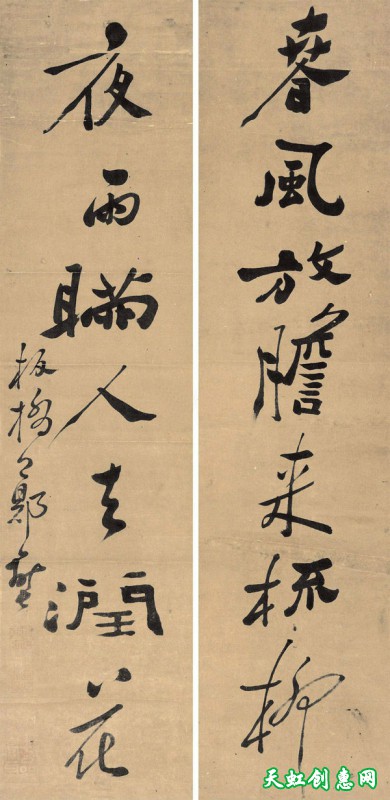 春風放膽來梳柳
夜雨瞞人去潤花
板橋鄭燮
天虹创惠网